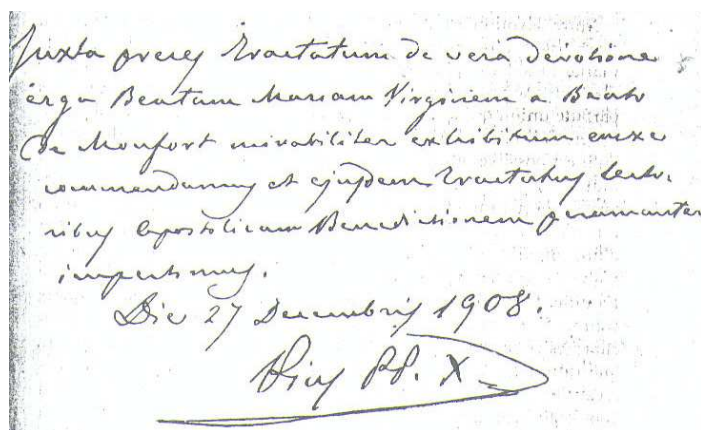 Juxta preces Tractatum de vera devotione
erga Beatam Mariam Virginem a Beato
De Monfort mirabiliter exhibitum enixe
commendamus et ejusdem Tractatus lecto-
ribus Apostolicam Benedictionem peramanter
impertimus.
Die 27 Decembris 1908.
Pius PP. X